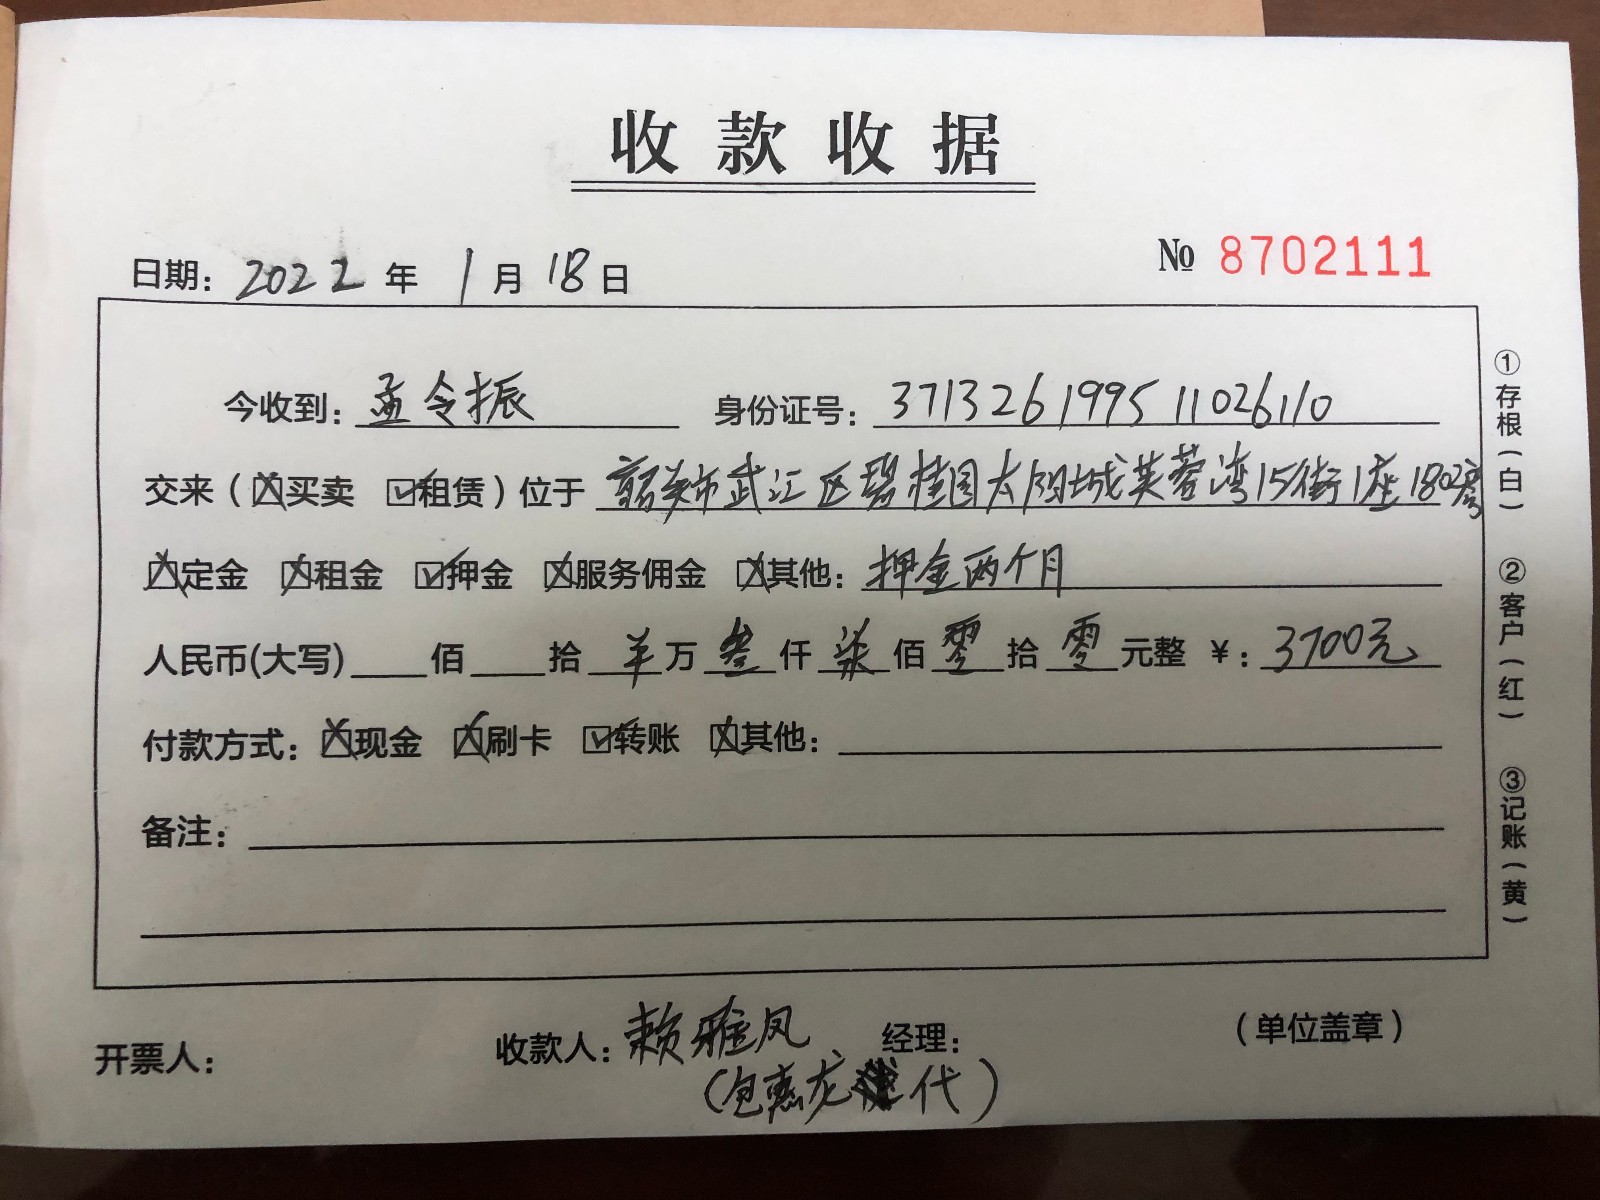 收款收据
日期: 2022 年 1 月 18 日
№ 8702111
今收到: 孟令振 身份证号: 371326199511026110
交来(☒买卖 ☑租赁)位于 韶关市武江区碧桂园太阳城芙蓉湾15街1座1802房
☒定金 ☒租金 ☑押金 ☒服务佣金 ☒其他: 押金两个月
人民币(大写) 佰 拾 羊万 叁仟 柒佰 零拾 零元整 ¥: 3700元
付款方式: ☒现金 ☒刷卡 ☑转账 ☒其他:
备注:
开票人: 收款人: 赖雅凤 经理: (单位盖章)
(包惠龙代)
①存根(白) ②客户(红) ③记账(黄)